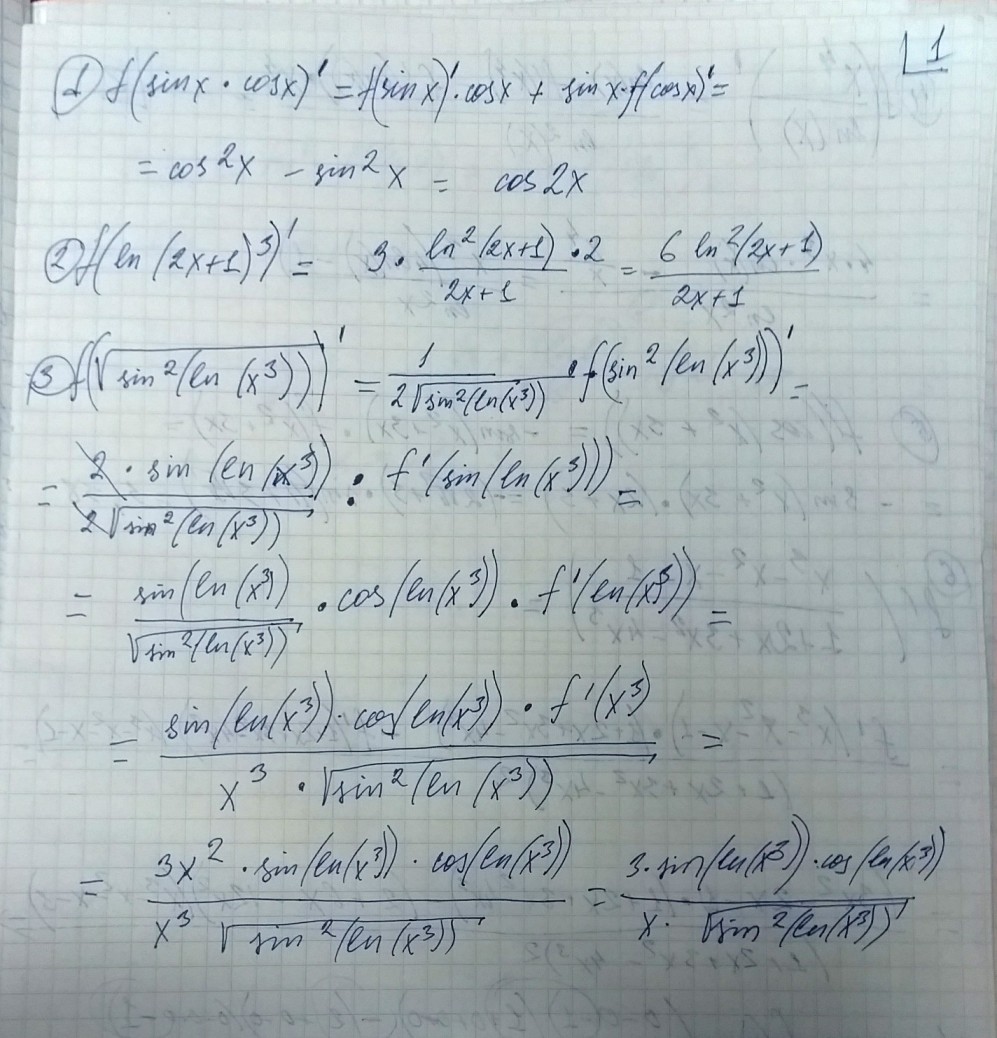 1
① f(sinx · cosx)' = f(sinx)' · cosx + sinx · f(cosx)' =
= cos²x - sin²x = cos2x
② f(ln(2x+1)³)' = 3 · \frac{ln²(2x+1) · 2}{2x+1} = \frac{6 ln²(2x+1)}{2x+1}
③ f(\sqrt{sin²(ln(x³))})' = \frac{1}{2\sqrt{sin²(ln(x³))}} · f(sin²(ln(x³)))' =
= \frac{2 · sin(ln(x³))}{2\sqrt{sin²(ln(x³))}} · f'(sin(ln(x³))) =
= \frac{sin(ln(x³)}{\sqrt{sin²(ln(x³))}} · cos(ln(x³)) · f'(ln(x³)) =
= \frac{sin(ln(x³)) · cos(ln(x³)) · f'(x³)}{x³ · \sqrt{sin²(ln(x³))}} =
= \frac{3x² · sin(ln(x³)) · cos(ln(x³))}{x³ \sqrt{sin²(ln(x³))}} = \frac{3 · sin(ln(x³)) · cos(ln(x³))}{x · \sqrt{sin²(ln(x³))}}